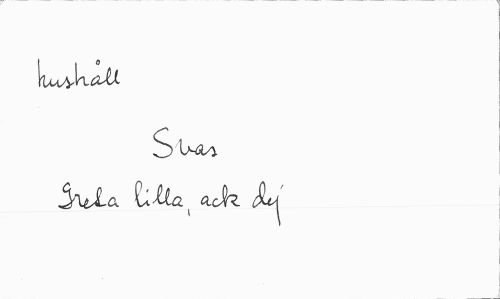 hushåll
Svas
Greta lilla, ack dej